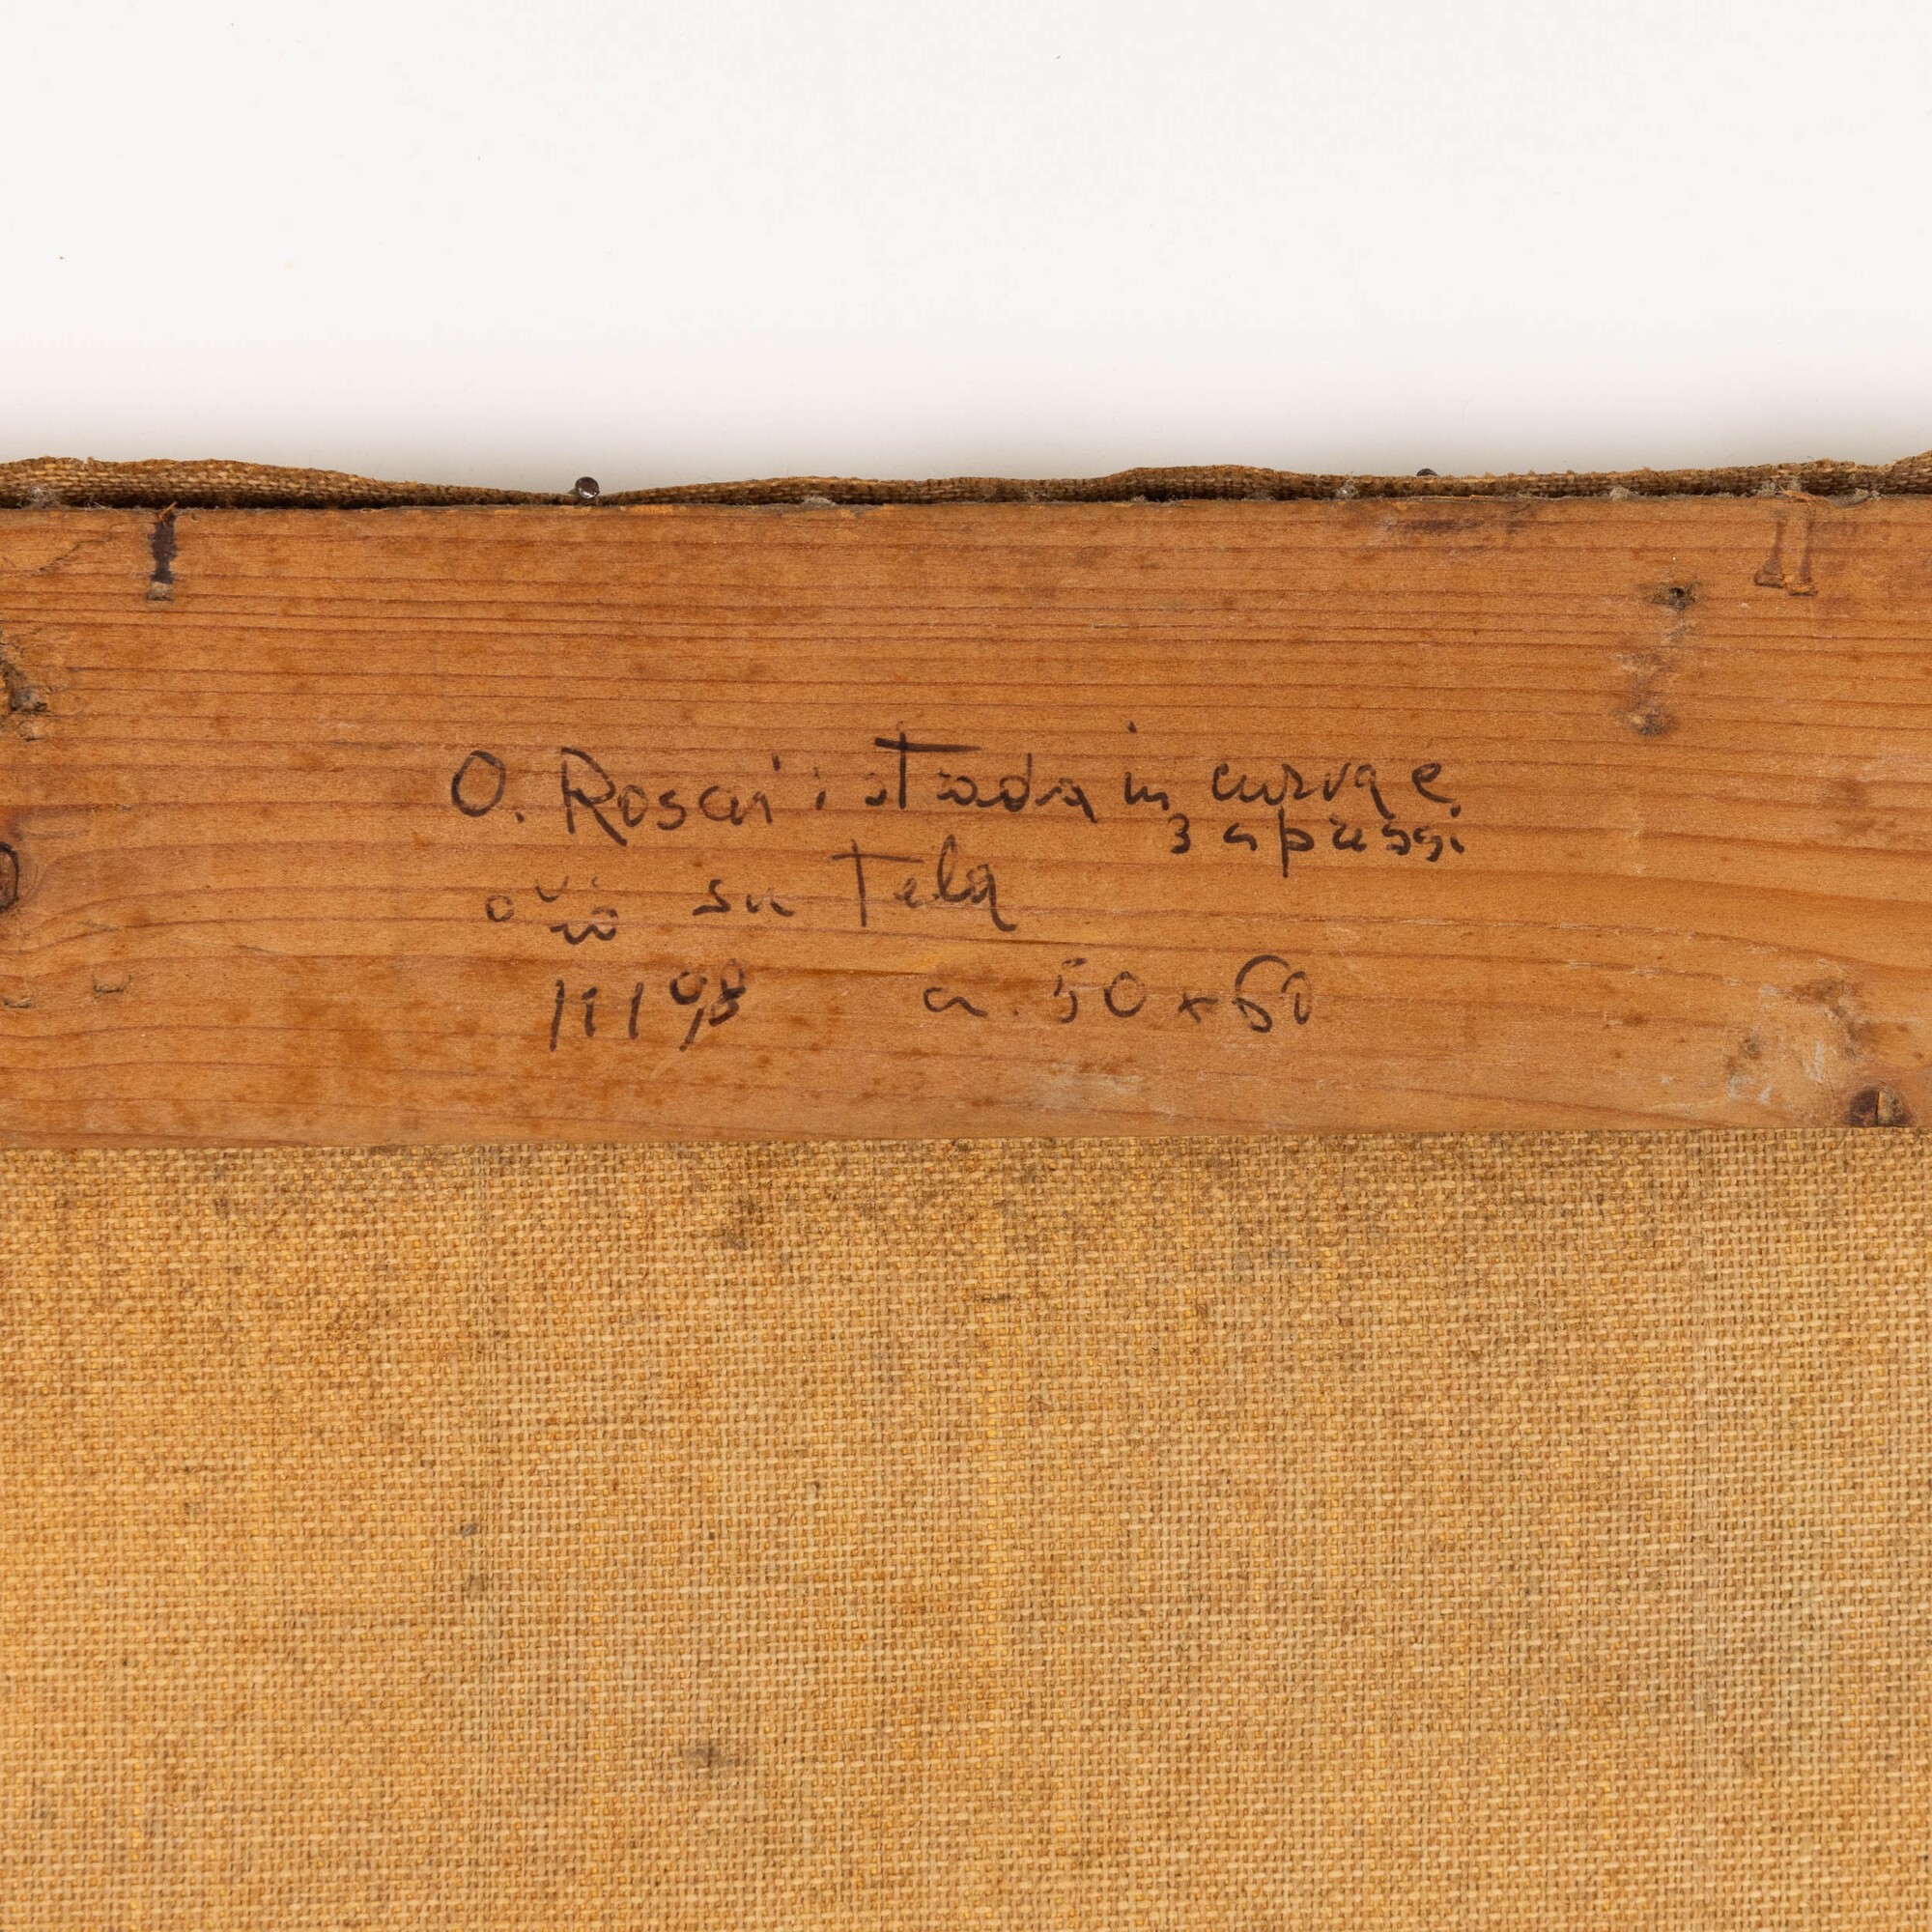 O. Rosai: strada in curva e
3 cipressi
olio su tela
c. 50 x 60